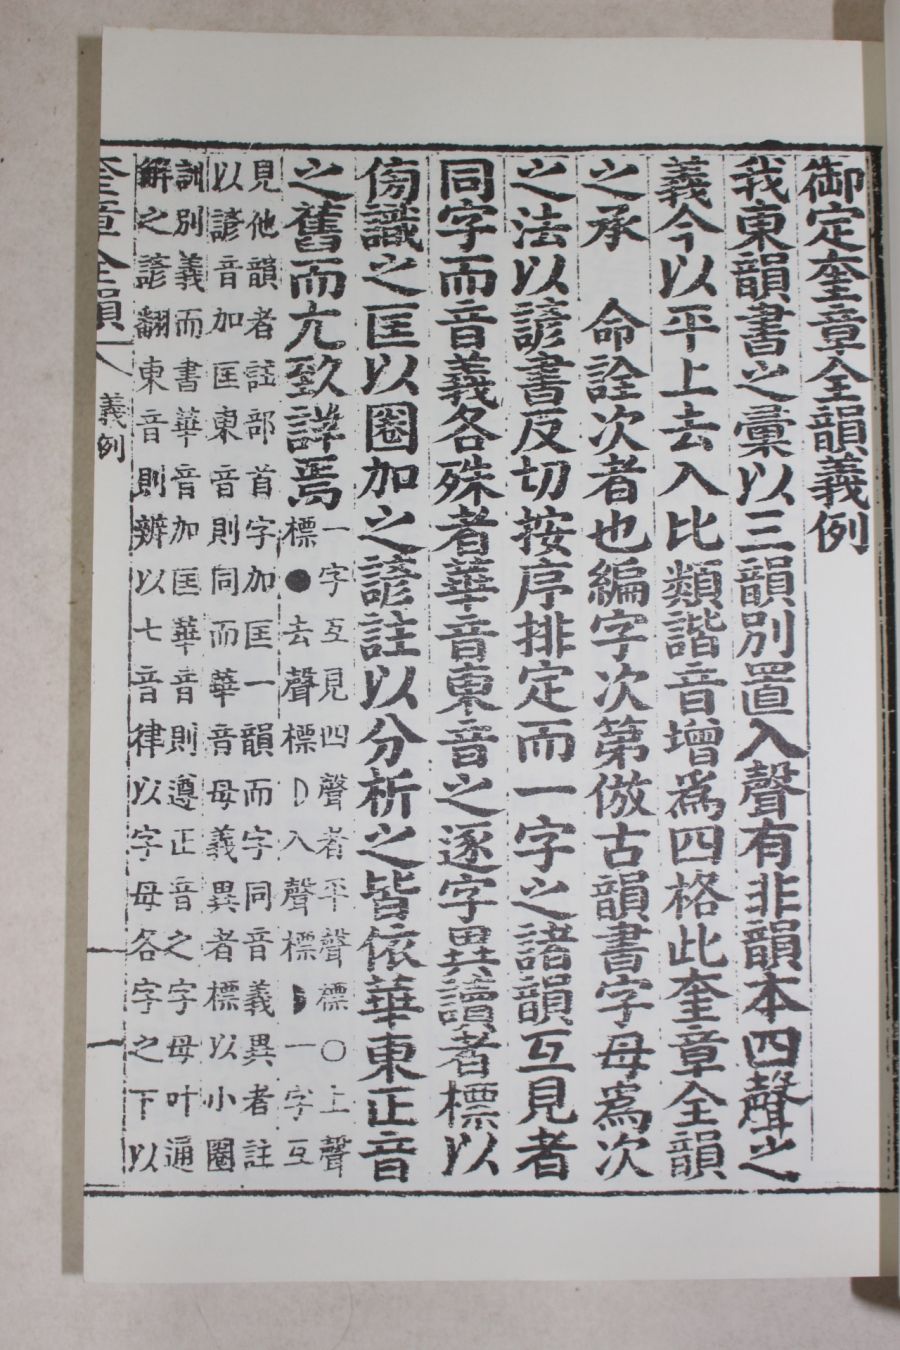 御定奎章全韻義例
我東韻書之彙以三韻別置入聲有非韻本四聲之
義今以平上去入比類諧音增爲四格此奎章全韻
之承　命詮次者也編字次第倣古韻書字母爲次
之法以諺書反切按序排定而一字之諸韻互見者
同字而音義各殊者華音東音之逐字異讀者標以
傍識之匡以圈加之諺註以分析之皆依華東正音
之舊而亢致詳焉
一字互見四聲者平聲標○上聲
標●去聲標D入聲標◗一字互
見他韻者註部首字加匡一韻而字同音義異者註
以諺音加匡東音則同而華音母義異者標以小圈
訓別義而書華音加匡華音則遵正音之字母叶通
解之諺翻東音則辨以七音律以字母各字之下以
奎章全韻
義例
一